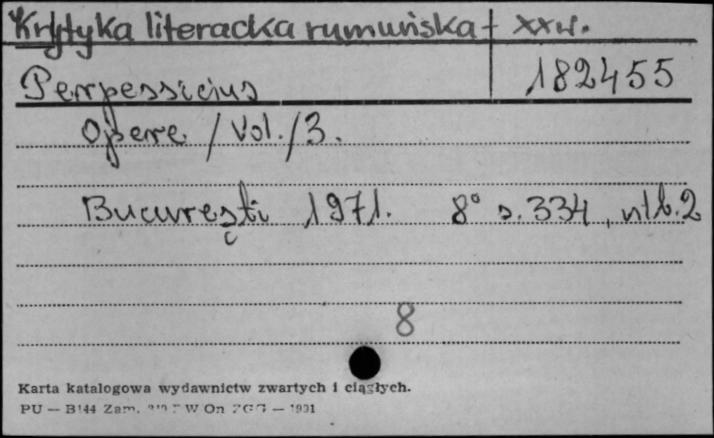 Krytyka literacka rumuńska + XXw.
Perpessicius 182455
Opere /Vol./3.
București 1971. 8° s. 334, nlb. 2
8
Karta katalogowa wydawnictw zwartych i ciągłych.
PU — B144 Zam. W On — 1991